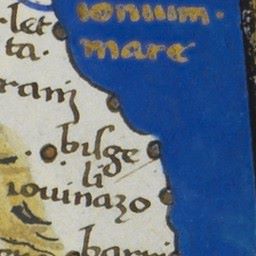 ionium
mare
let
ta.
ranj
bisge
li
iouinazo